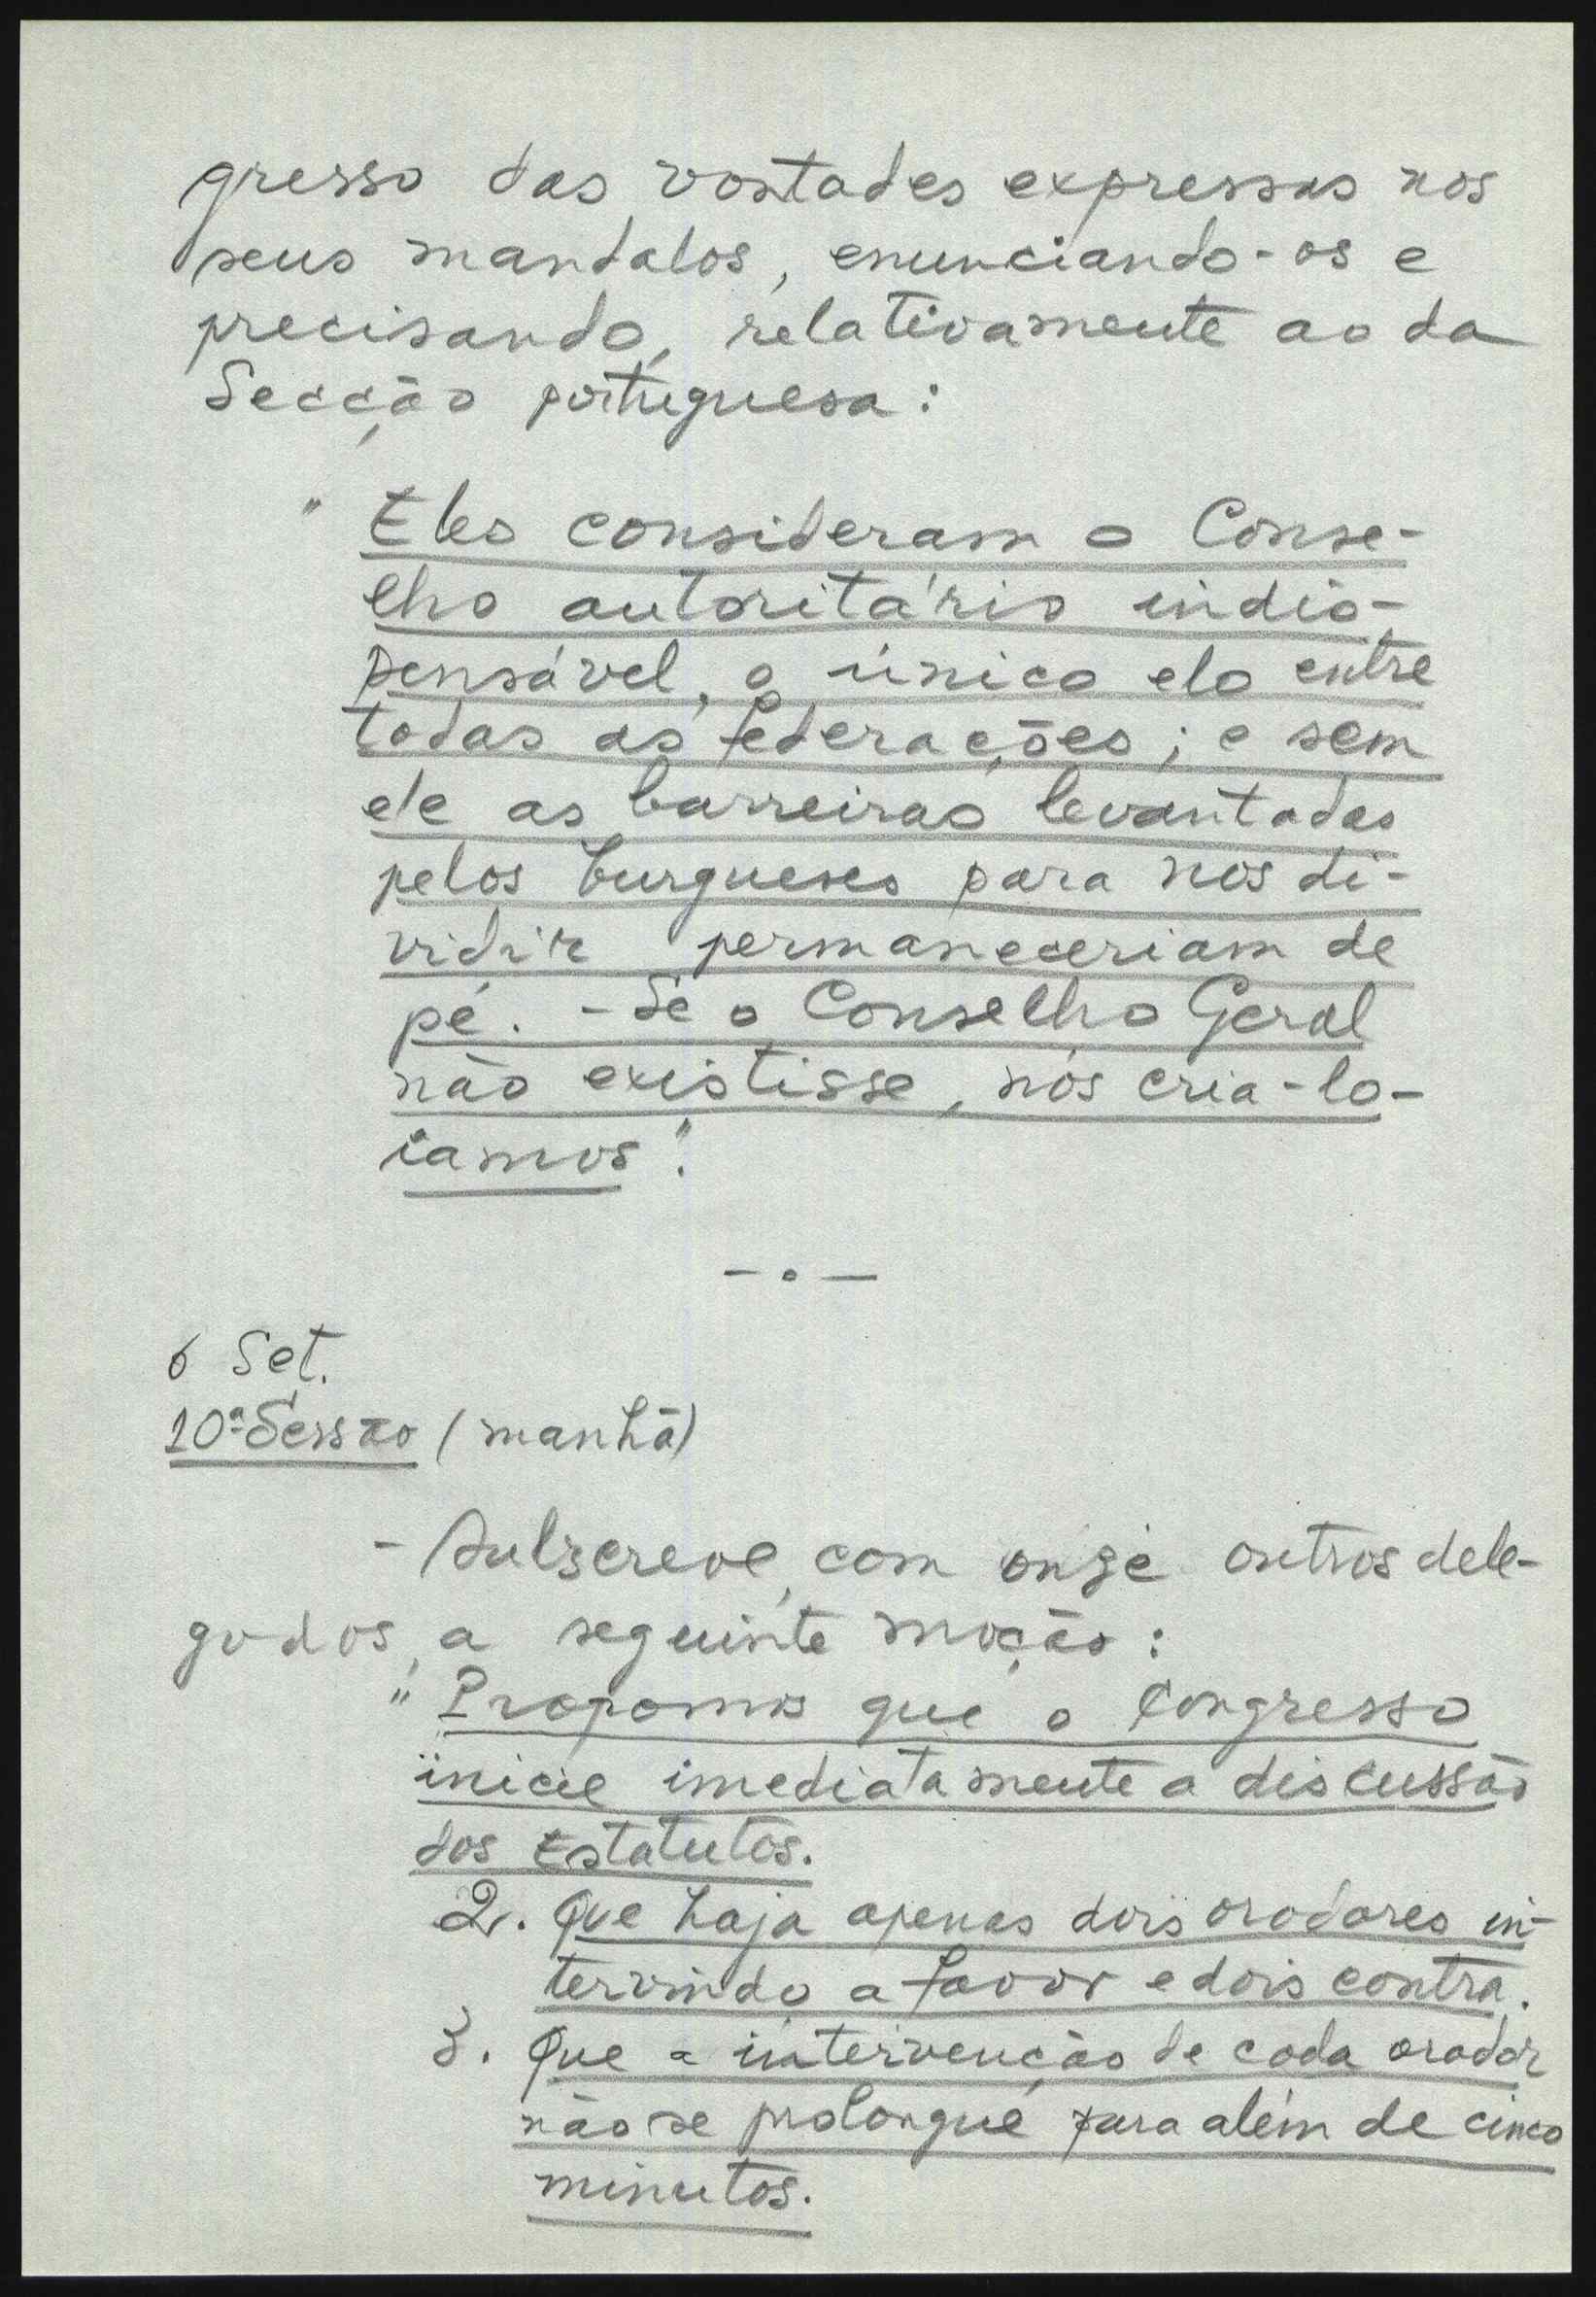 gresso das vontades expressas nos
seus mandatos, enunciando-os e
precisando, relativamente ao da
Secção portuguesa:
" Eles consideram o Conse-
lho autoritário indis-
pensável, o único elo entre
todas as federações; e sem
ele as barreiras levantadas
pelos burgueses para nos di-
vidir permaneceriam de
pé. - Se o Conselho Geral
não existisse, nós cria-lo-
iamos".
- . -
6 Set.
10ª Sessão (manhã)
- Subscreve, com onze outros dele-
gados, a seguinte moção:
" Propomos que o Congresso
inicie imediatamente a discussão
dos Estatutos.
2. Que haja apenas dois oradores in-
tervindo a favor e dois contra.
3. Que a intervenção de cada orador
não se prolongue para além de cinco
minutos.